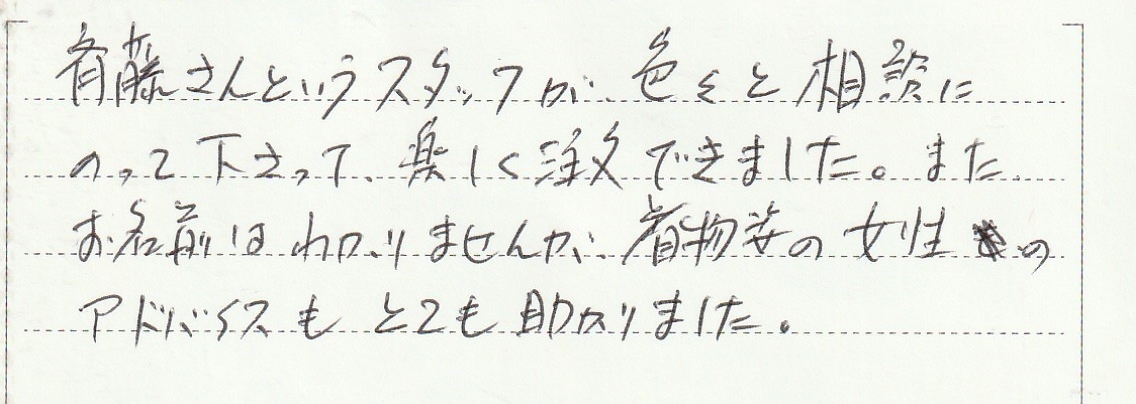 斉藤さんというスタッフが、色々と相談に
のって下さって、楽しく注文できました。また
お名前はわかりませんが、着物姿の女性の
アドバイスもとても助かりました。